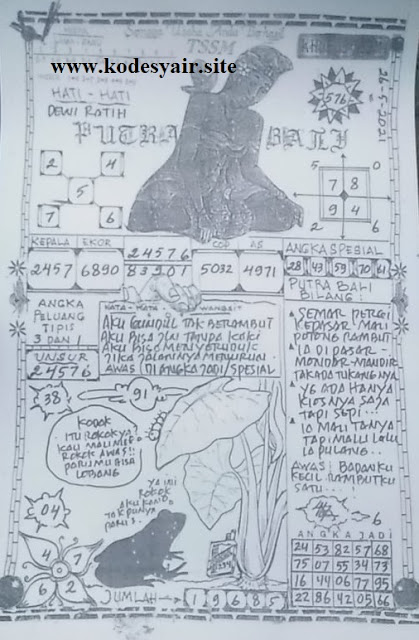 Semoga Usaha Anda Berhasil
TSSM
www.kodesyair.site
HATI - HATI
DEWI RATIH
PUTRA BALI
576
26-5-2021
2 4
5
7 6
5 0
7 8
9 4
2 6
KEPALA EKOR
2457 6890
24576
83201
COP AS
5032 4971
ANGKA SPESIAL
28 43 59 70 61
ANGKA
PELUANG
TIPIS
3 DAN 1
UNSUR
24576
KATA - KATA WANGSIT
AKU GUNDUL TAK BERAMBUT
AKU BISA
AKU BISA
JIKA JALANNYA MENURUN
AWAS DI ANGKA JADI / SPESIAL
PUTRA BALI
BILANG :
SEMAR PERGI
KEPASAR MAU
POTONG RAMBUT
IA DI PASAR
MONDAR-MANDIR
TAK ADA TUKANG NYA
YG ADA HANYA
KIOSNYA SAJA
TAPI SEPI...
IA MAU TANYA
TAPI MALU LALU
IA PULANG...
AWAS! BADANKU
KECIL RAMBUTKU
SATU...!
38
91
KODOK
ITU ROKOKYA?
KAU MAU
ROKOK AWAS!!
PARUMU BISA
LOBANG
YA INI
ROKOK
AKU
TAK PUNYA
PARU2.
04
4 7
6 2
6
ANGKA JADI
24 53 82 57 68
75 07 55 34 73
16 44 06 77 95
22 86 42 05 66
JUMLAH 1 9 6 8 5